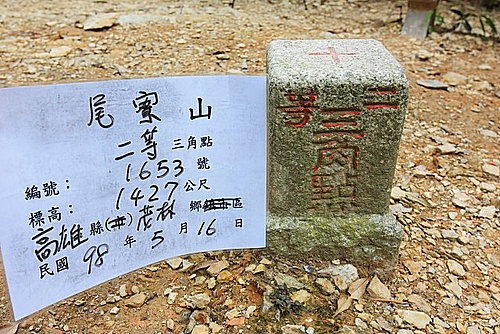 尾寮山
二等 三角點
編號： 1653 號
標高： 1427 公尺
高雄 縣(市) 茂林 鄉鎮市區
民國 98 年 5 月 16 日
十
二等
三角點